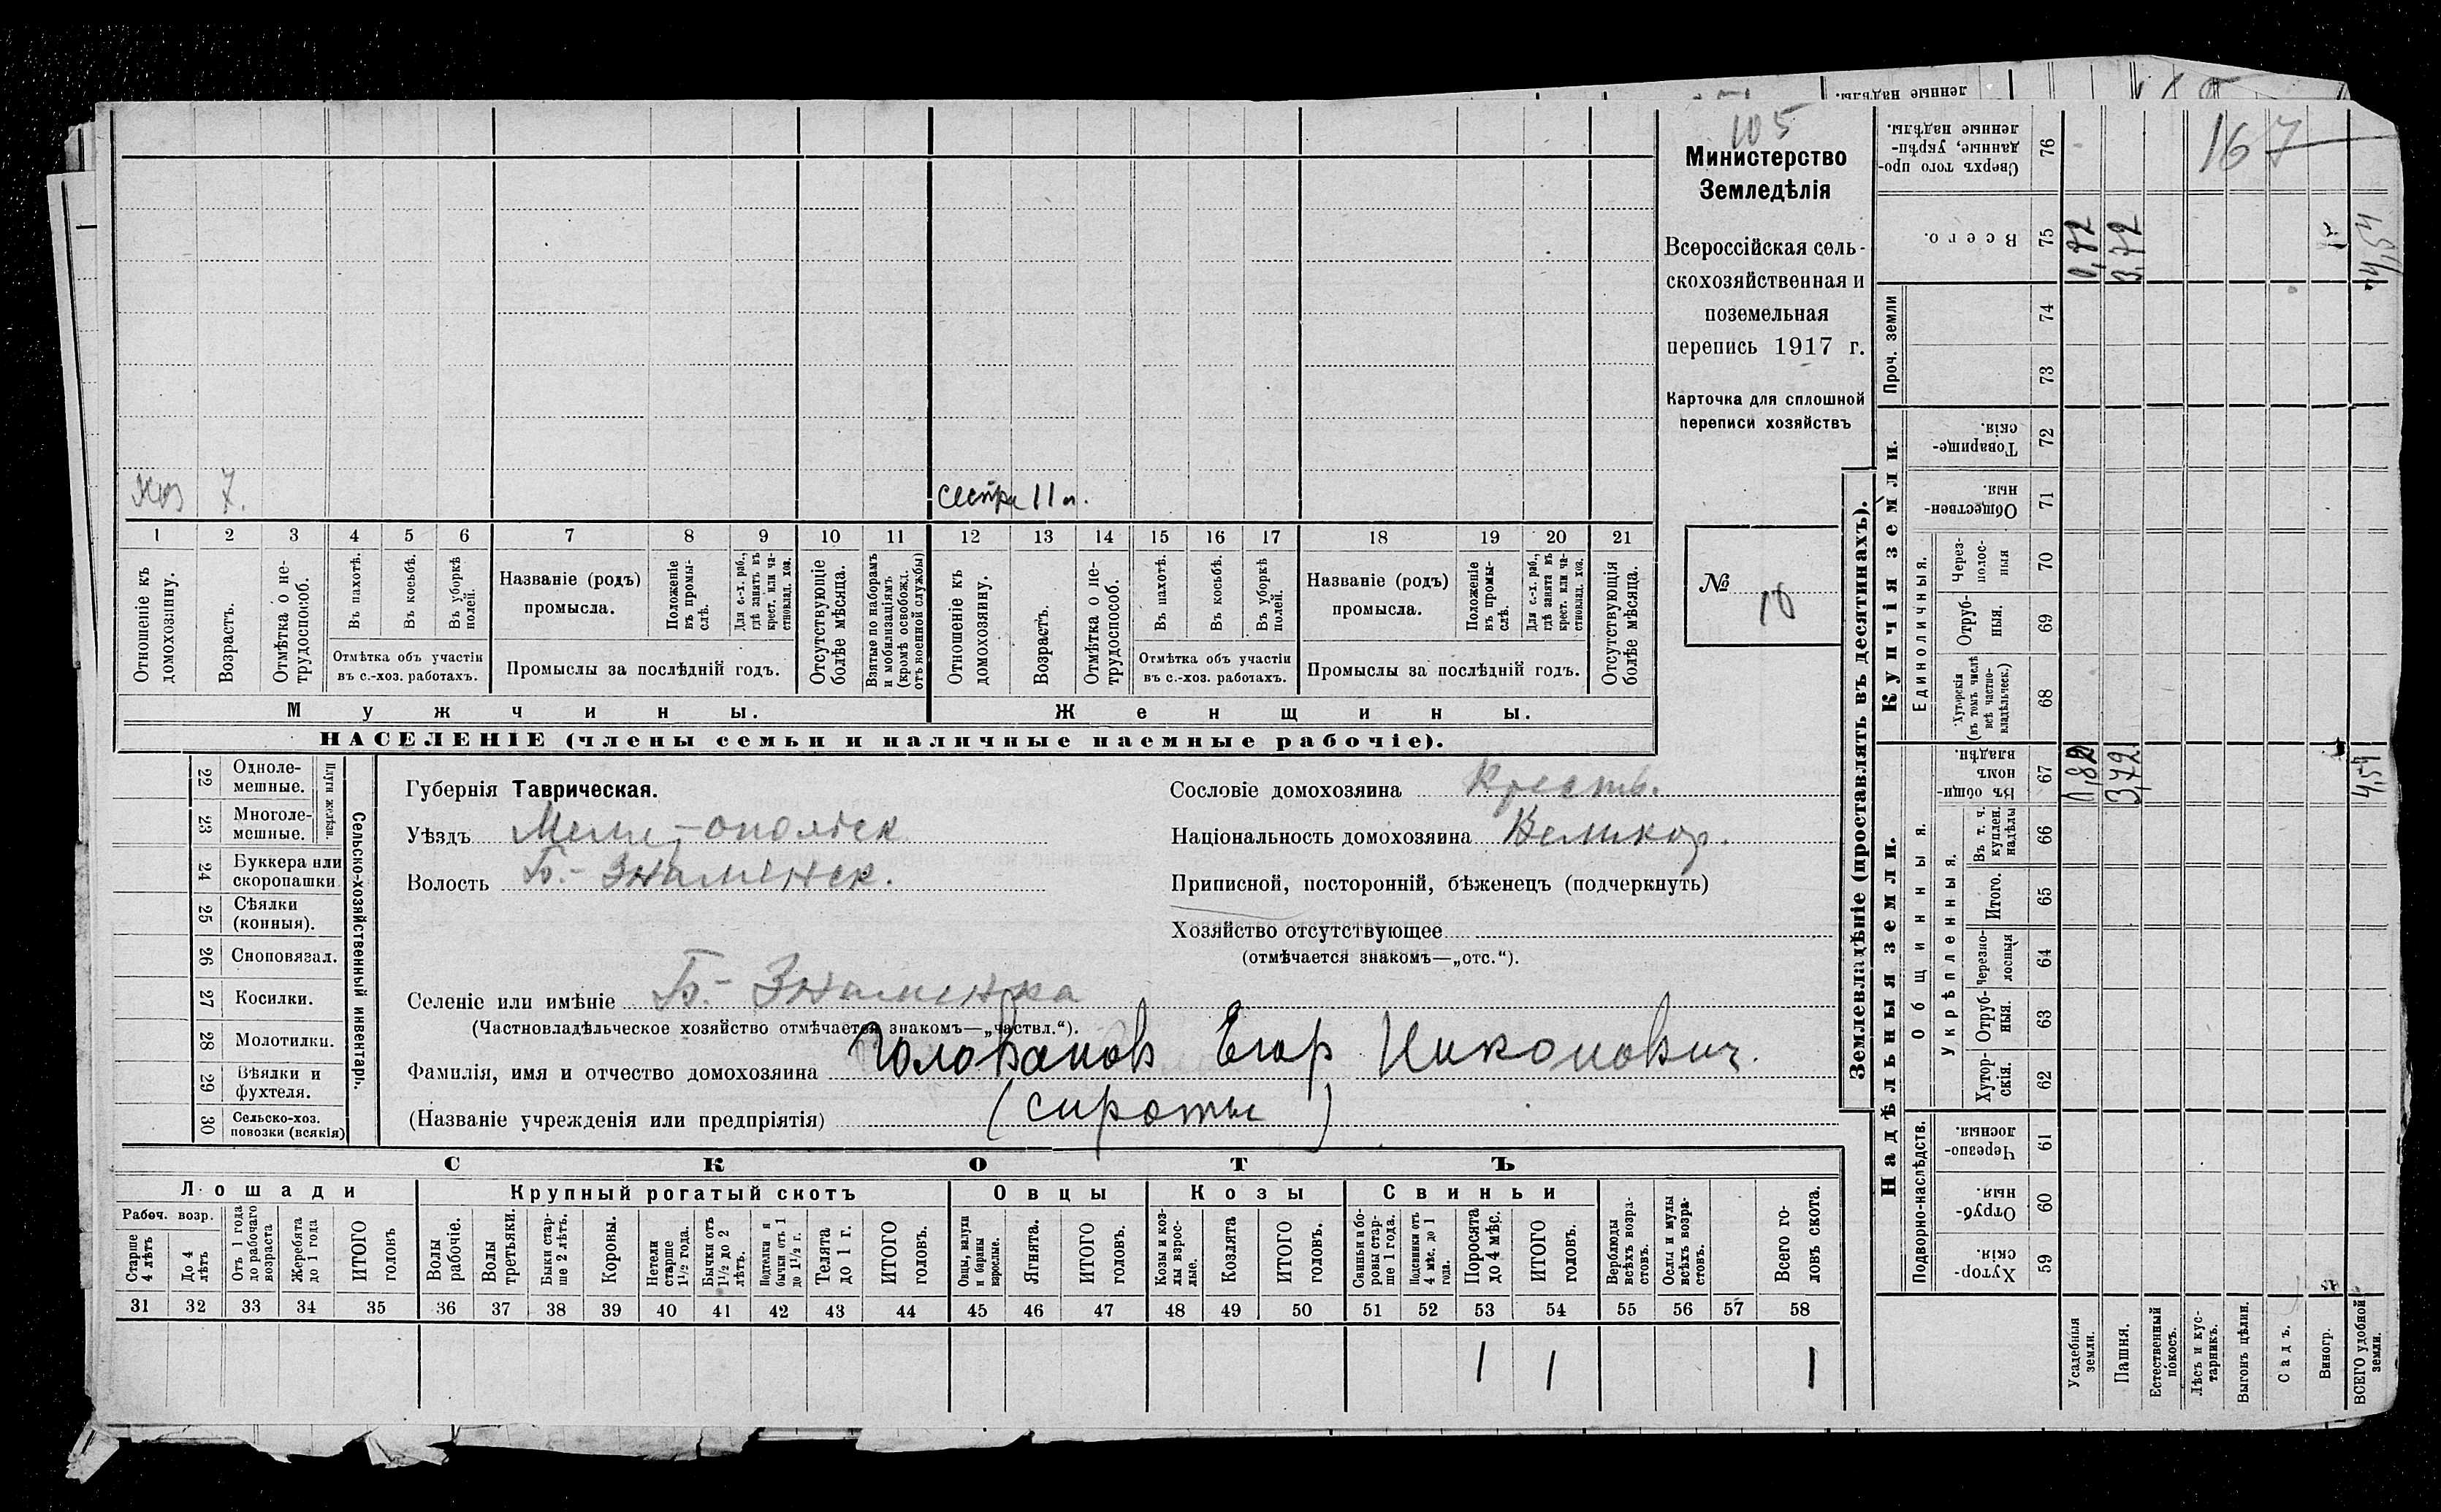 105
Министерство
Земледѣлія
Всероссійская сель-
скохозяйственная и
поземельная
перепись 1917 г.
Карточка для сплошной
переписи хозяйствъ
№ 10
167
Хоз 7.
сестра 11 л.
1 2 3 4 5 6 7 8 9 10 11 12 13 14 15 16 17 18 19 20 21
Отношеніе къ домохозяину.
Возрастъ.
Отмѣтка о не-трудоспособ.
Въ пахотѣ.
Въ косьбѣ.
Въ уборкѣ полей.
Отмѣтка объ участіи въ с.-хоз. работахъ.
Названіе (родъ) промысла.
Положеніе въ промы-слѣ.
Для с.-х. раб., гдѣ занятъ въ крест. или ча-стновлад. хоз.
Промыслы за послѣдній годъ.
Отсутствующіе болѣе мѣсяца.
Взятые по наборамъ и мобилизаціямъ (кромѣ освобожд. отъ военной службы)
Отношеніе къ домохозяину.
Возрастъ.
Отмѣтка о не-трудоспособ.
Въ пахотѣ.
Въ косьбѣ.
Въ уборкѣ полей.
Отмѣтка объ участіи въ с.-хоз. работахъ.
Названіе (родъ) промысла.
Положеніе въ промы-слѣ.
Для с.-х. раб., гдѣ занята въ крест. или ча-стновлад. хоз.
Промыслы за послѣдній годъ.
Отсутствующія болѣе мѣсяца.
Мужчины.
Женщины.
НАСЕЛЕНІЕ (члены семьи и наличные наемные рабочіе).
Сельско-хозяйственный инвентарь.
Плуги желѣзн.
22 Одноле-мешные.
23 Многоле-мешные.
24 Буккера или скоропашки
25 Сѣялки (конныя).
26 Сноповязал.
27 Косилки.
28 Молотилки.
29 Вѣялки и фухтеля.
30 Сельско-хоз. повозки (всякія)
Губернія Таврическая.
Уѣздъ Мелитопольск
Волость Б.-Знаменск.
Сословіе домохозяина Крестъ.
Національность домохозяина Великор.
Приписной, посторонній, бѣженецъ (подчеркнуть)
Хозяйство отсутствующее
(отмѣчается знакомъ—„отс.“).
Селеніе или имѣніе Б.-Знаменка
(Частновладѣльческое хозяйство отмѣчается знакомъ—„частвл.“).
Фамилія, имя и отчество домохозяина Голованов Егор Никонович.
(Названіе учрежденія или предпріятія) (сироты)
СКОТЪ
Лошади
Крупный рогатый скотъ
Овцы
Козы
Свиньи
Рабоч. возр.
Старше 4 лѣтъ
До 4 лѣтъ
Отъ 1 года до рабочаго возраста
Жеребята до 1 года
ИТОГО головъ
Волы рабочіе.
Волы третьяки.
Быки стар-ше 2 лѣтъ.
Коровы.
Нетели старше 1½ года.
Бычки отъ 1½ до 2 лѣтъ.
Подтелки и бычки отъ 1 до 1½ г.
Телята до 1 г.
ИТОГО головъ.
Овцы, валухи и бараны взрослые.
Ягнята.
ИТОГО головъ.
Козы и коз-лы взрос-лые.
Козлята
ИТОГО головъ.
Свиньи и бо-ровы стар-ше 1 года.
Подсвинки отъ 4 мѣс. до 1 года.
Поросята до 4 мѣс.
ИТОГО головъ.
Верблюды всѣхъ возра-стовъ.
Ослы и мулы всѣхъ возра-стовъ.
Всего го-ловъ скота.
31 32 33 34 35 36 37 38 39 40 41 42 43 44 45 46 47 48 49 50 51 52 53 54 55 56 57 58
1 1 1
Землевладѣніе (проставлять въ десятинахъ).
Надѣльныя земли.
Купчія земли.
Проч. земли
Подворно-наслѣдств.
Общинныя.
Укрѣпленныя.
Единоличныя.
Сверхъ того про-данные, укрѣп-ленные надѣлы. 76
Всего. 75
74
73
Товарище-скія. 72
Обществен-ныя. 71
Через-полос-ныя 70
Отруб-ныя. 69
Хуторскія (въ томъ числѣ всѣ частно-владѣльческ.) 68
Въ общи-номъ владѣн. 67
Въ т. ч. куплен. надѣлы 66
Итого. 65
Черезпо-лосныя 64
Отруб-ныя. 63
Хутор-скія. 62
Черезпо-лосныя. 61
Отруб-ныя. 60
Хутор-скія. 59
Усадебныя земли. 0,82
Пашня. 3,72 3,72
Естественный покосъ.
Лѣсъ и кус-тарникъ.
Выгонъ цѣлин.
Садъ.
Виногр.
ВСЕГО удобной земли. 4,54 4,54